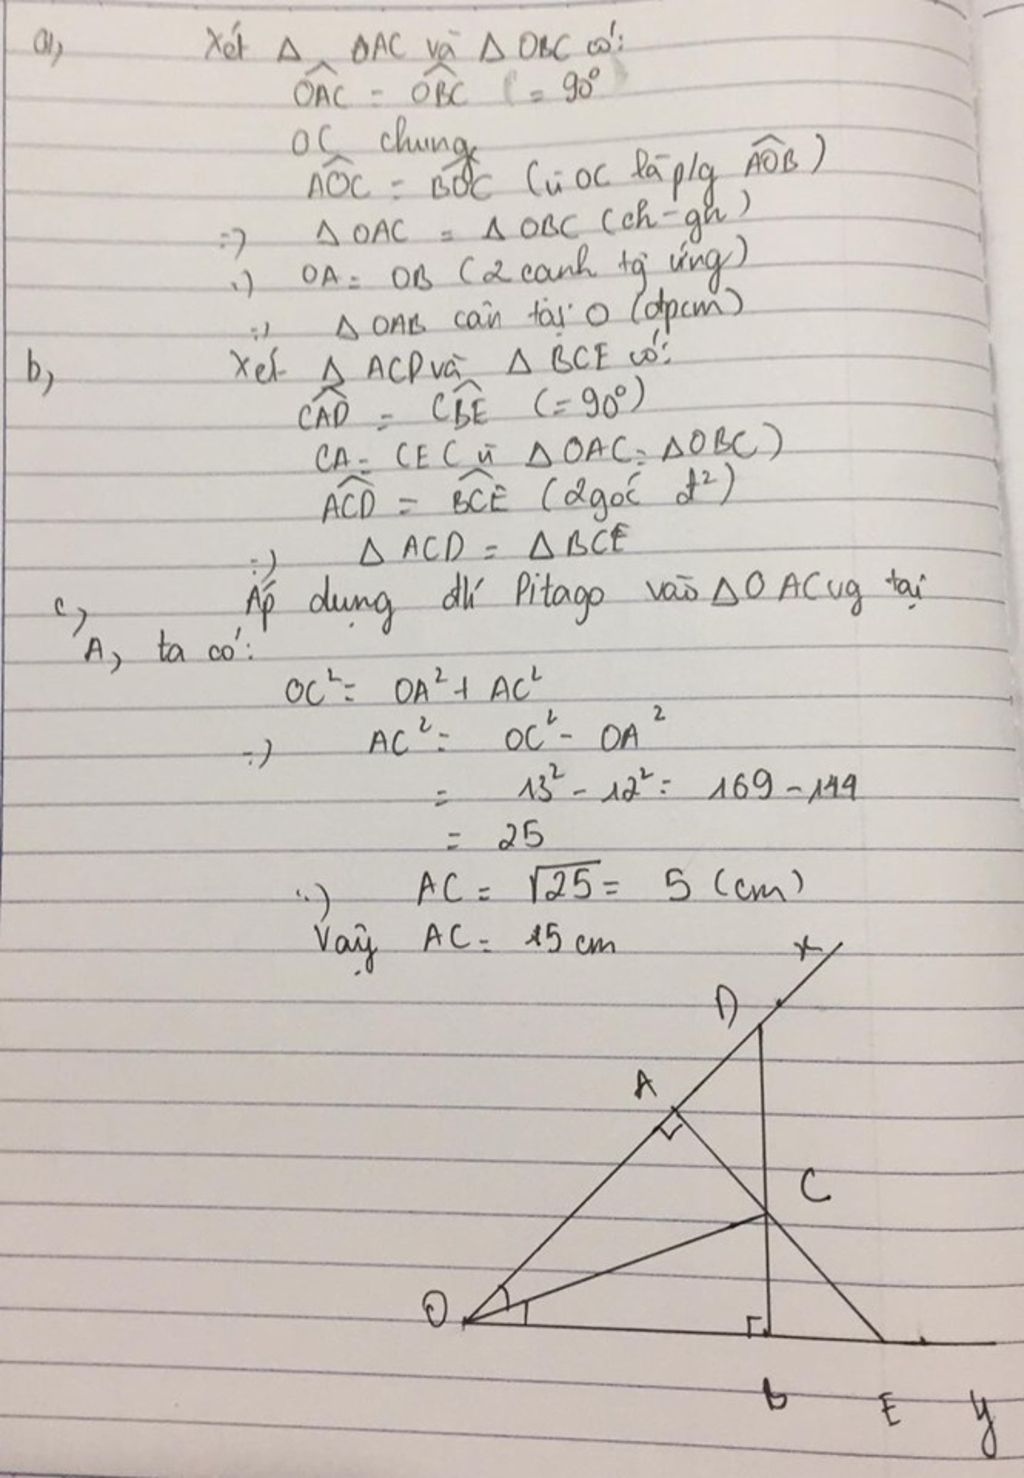 a, Xét Δ OAC và Δ OBC có:
\widehat{OAC} = \widehat{OBC} (= 90°
OC chung
\widehat{AOC} = \widehat{BOC} (vì OC là p/g \widehat{AOB})
=) Δ OAC = Δ OBC (ch-gn)
=) OA = OB (2 canh tg ứng)
=) Δ OAB cân tại O (đpcm)
b, Xét Δ ACD và Δ BCE có:
\widehat{CAD} = \widehat{CBE} (= 90°)
CA = CE ( vì Δ OAC = Δ OBC)
\widehat{ACD} = \widehat{BCE} (2 góc đ²)
=) Δ ACD = Δ BCE
c, Áp dụng đlí Pitago vào Δ OAC vg tại
A, ta có:
OC² = OA² + AC²
=) AC² = OC² - OA²
= 13² - 12² = 169 - 144
= 25
=) AC = √25 = 5 (cm)
Vậy AC = 15 cm
x
D
A
C
O
B E y